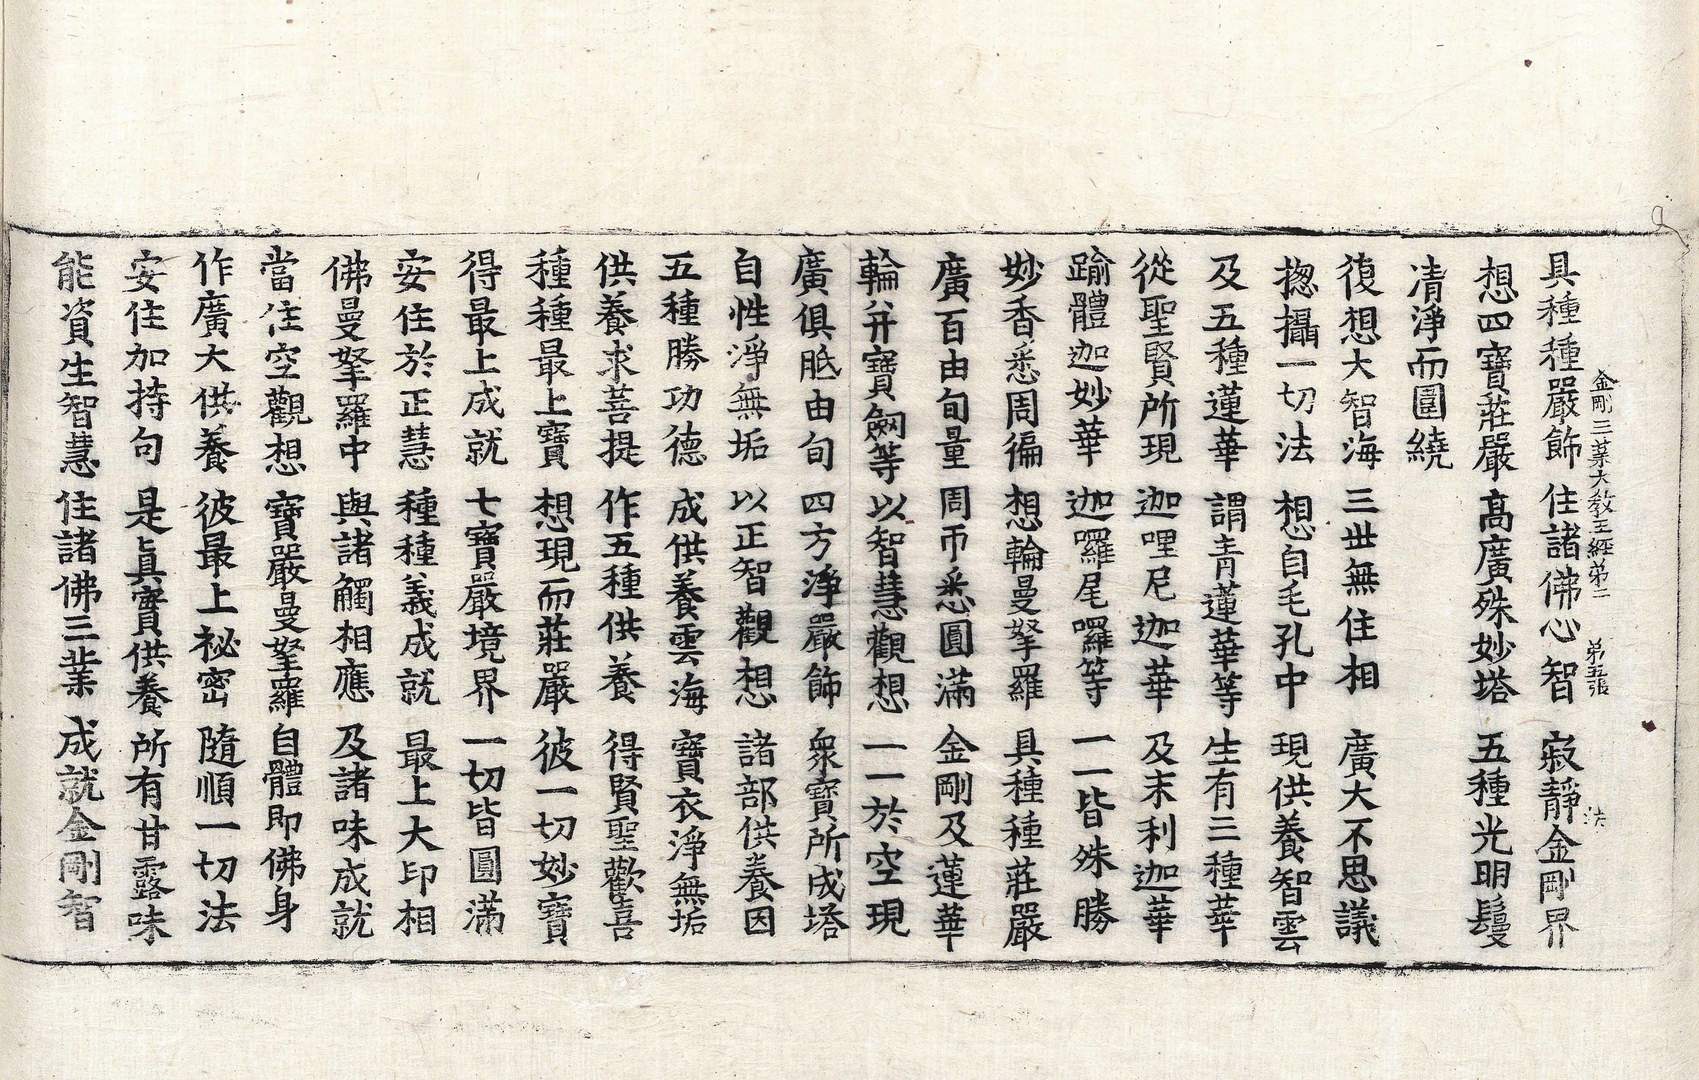 金剛三業大敎王經第二 第五張 法
具種種嚴飾 住諸佛心智 寂靜金剛界
想四寶莊嚴 高廣殊妙塔 五種光明鬘
清淨而圍繞
復想大智海 三世無住相 廣大不思議
揔攝一切法 想自毛孔中 現供養智雲
及五種蓮華 謂靑蓮華等 生有三種華
從聖賢所現 迦哩尼迦華 及末利迦華
踰體迦妙華 迦囉尾囉等 一一皆殊勝
妙香悉周徧 想輪曼拏羅 具種種莊嚴
廣百由旬量 周帀悉圓滿 金剛及蓮華
輪幷寶劒等 以智慧觀想 一一於空現
廣俱胝由旬 四方淨嚴飾 衆寶所成塔
自性淨無垢 以正智觀想 諸部供養因
五種勝功德 成供養雲海 寶衣淨無垢
供養求菩提 作五種供養 得賢聖歡喜
種種最上寶 想現而莊嚴 彼一切妙寶
得最上成就 七寶嚴境界 一切皆圓滿
安住於正慧 種種義成就 最上大印相
佛曼拏羅中 與諸觸相應 及諸味成就
當住空觀想 寶嚴曼拏羅 自體即佛身
作廣大供養 彼最上祕密 隨順一切法
安住加持句 是眞實供養 所有甘露味
能資生智慧 住諸佛三業 成就金剛智